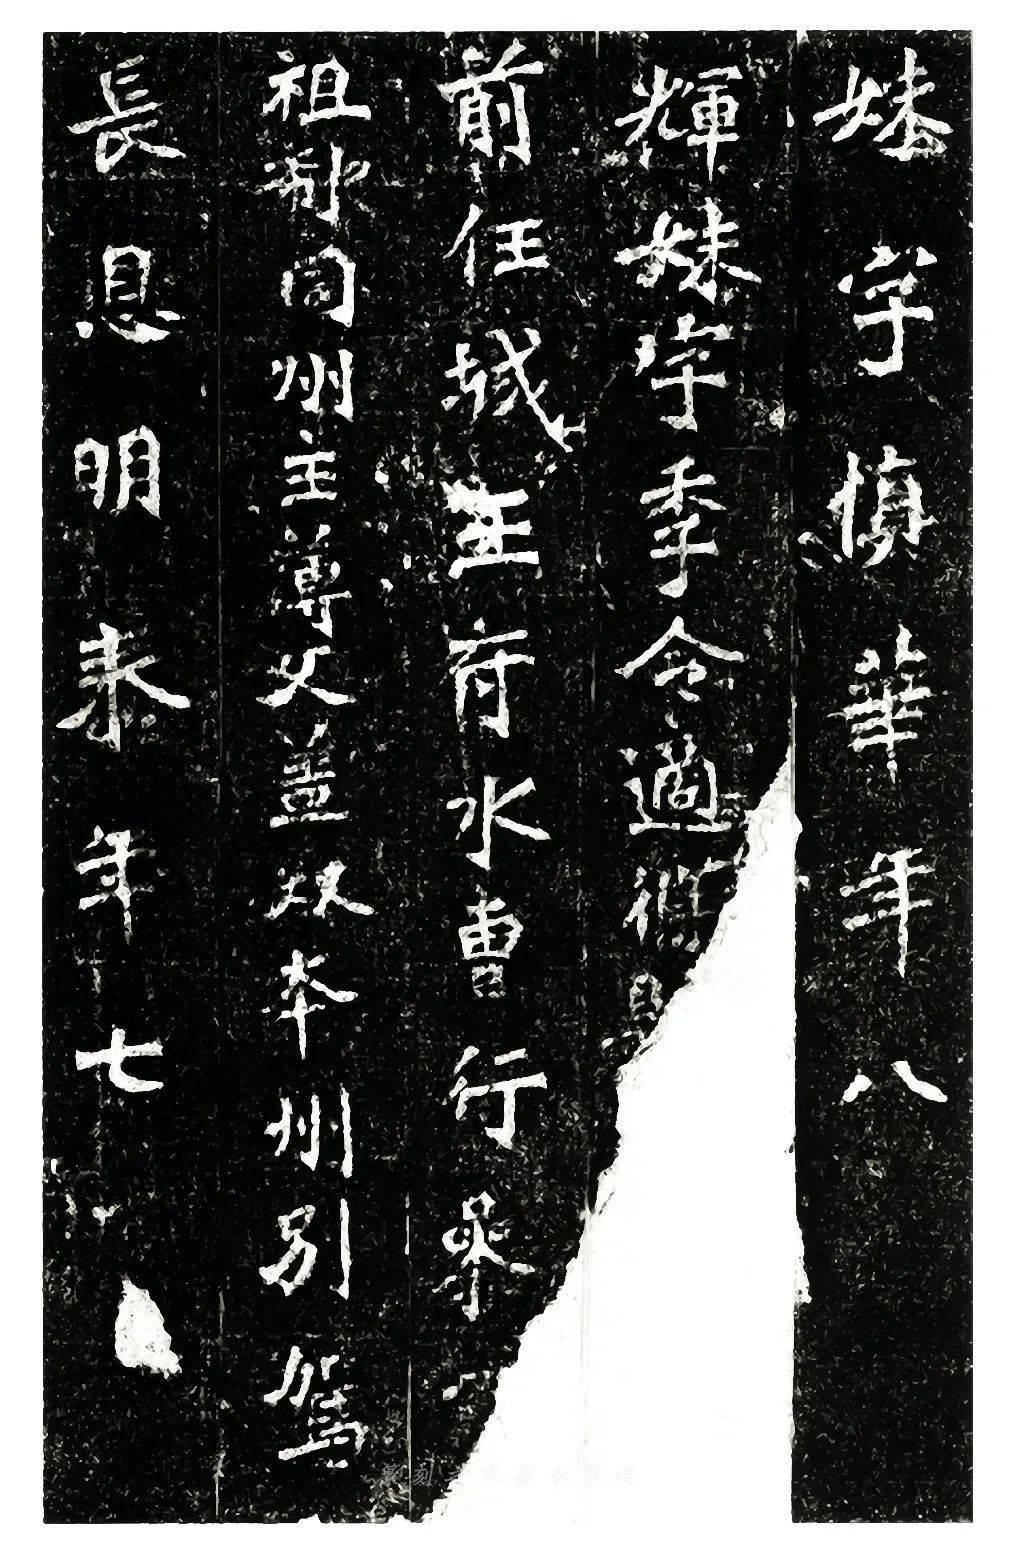 妹字慎華年八
輝妹字季令適
前任城王府水曹行參
祖歡司州主薄父蓋双本州別駕
長恩明泰年七